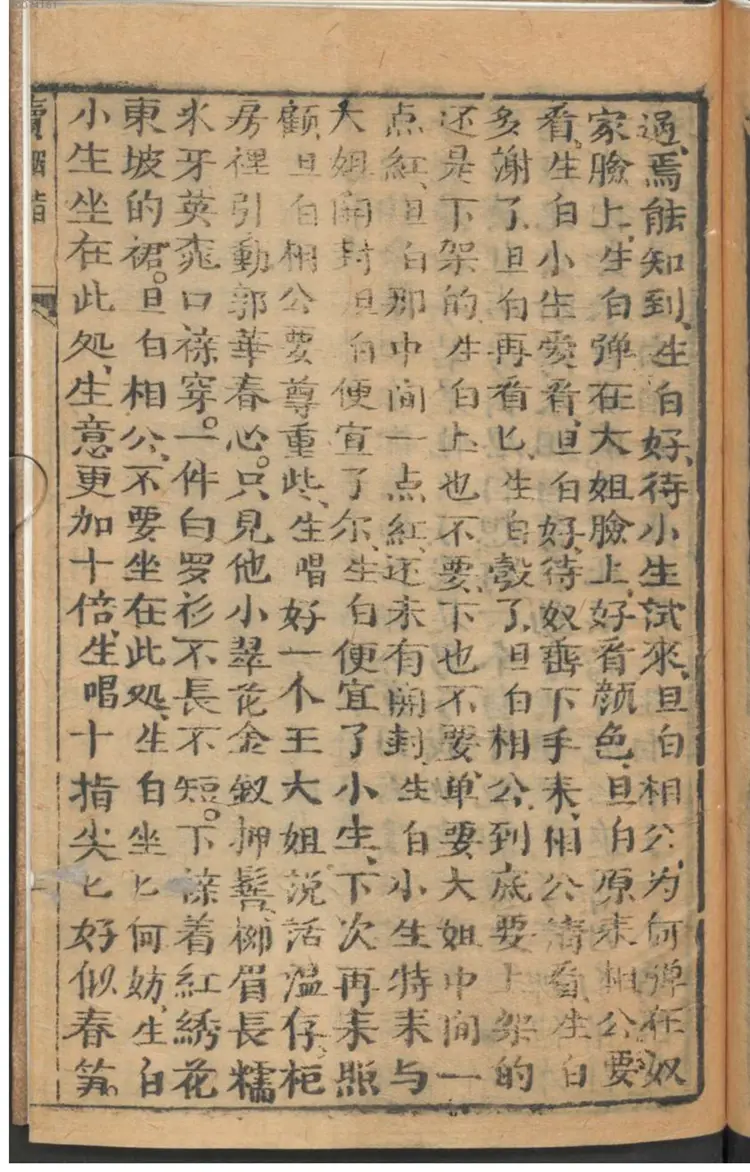 過、焉能知到、生白好、待小生試來、旦白相公、为何弹在奴
家臉上、生白弹在大姐臉上、好看颜色、旦白原來相公要
看、生白小生爱看、旦白好、待奴垂下手来、相公請看、生白
多謝了、旦白再看匕、生白彀了、旦白相公、到底要上架的
还是下架的、生白上也不要、下也不要、单要大姐中间一
点紅、旦白那中间一点紅、还未有開封、生白小生特来与
大姐開封、旦白便宜了尔、生白便宜了小生、下次再来照
顧、旦白相公要尊重些、生唱好一个王大姐說话温存柜
房裡引動郭華春心。只見他小翠花金釵押鬓、柳眉長糯
米牙英桃口襐穿。一件白罗衫不長不短。下襐着紅綉花
東坡的裙。旦白相公、不要坐在此処、生白坐匕何妨、生白
小生坐在此処、生意更加十倍、生唱十指尖匕好似春笋。
賣胭脂